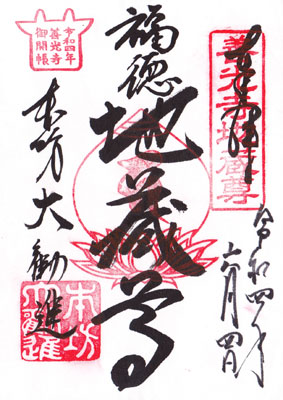 奉拝
善光寺地蔵尊
令和四年六月四日
福徳
地蔵尊
令和四年
善光寺
御開帳
本坊大勧進
本坊
大勧進